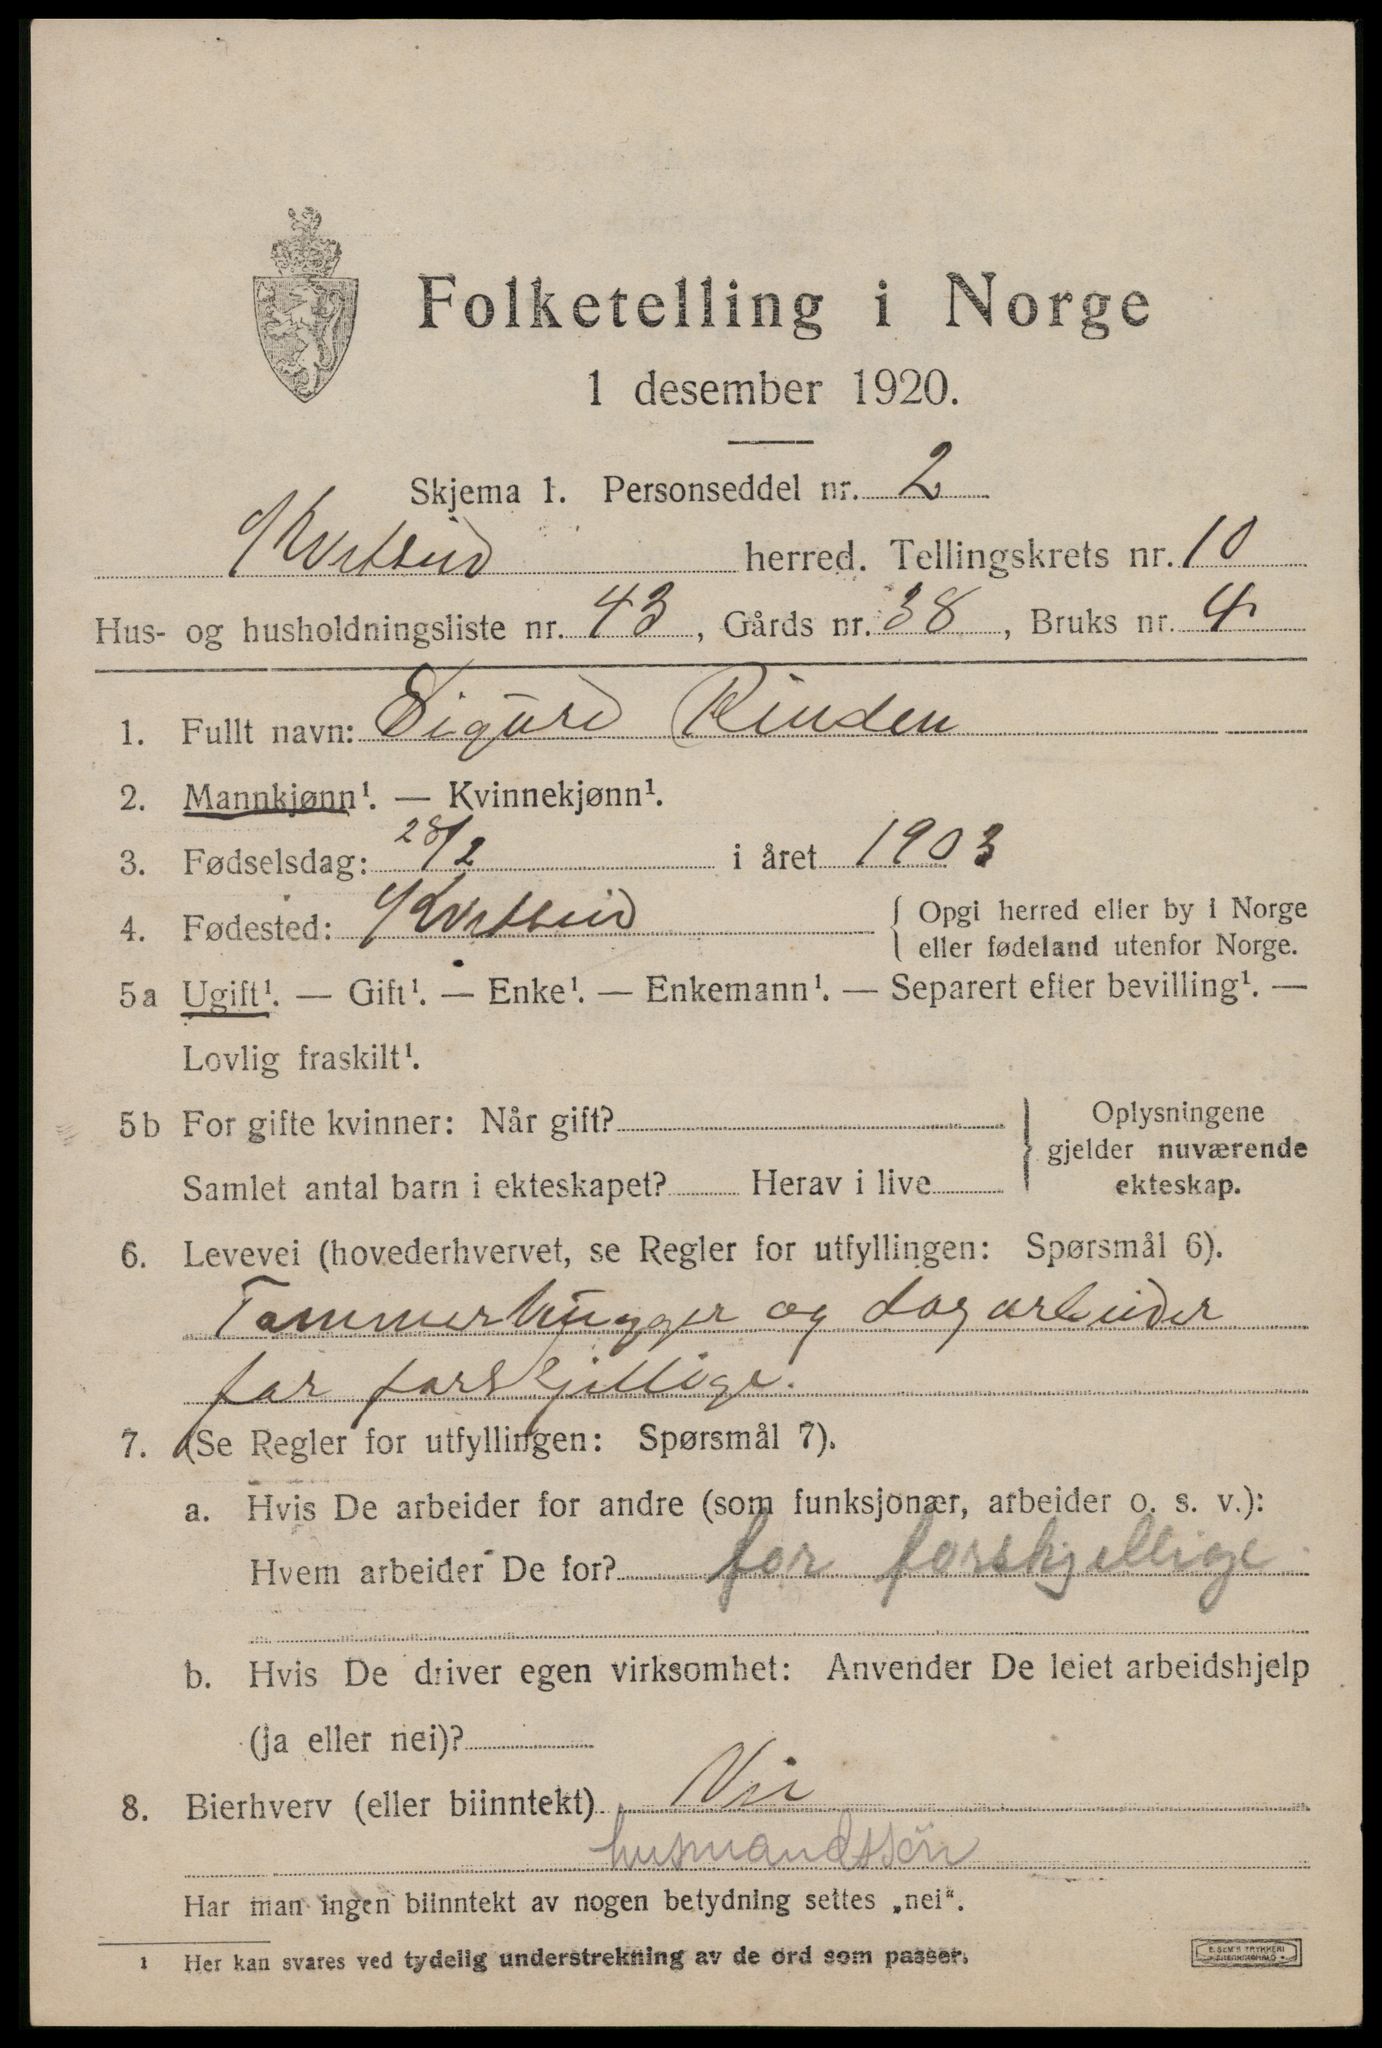 Folketelling i Norge
1 desember 1920.
Skjema 1. Personseddel nr. 2
Kviteseid herred. Tellingskrets nr. 10
Hus- og husholdningsliste nr. 43, Gårds nr. 38, Bruks nr. 4
1. Fullt navn: Sigurd Rinden
2. Mannkjønn¹. — Kvinnekjønn¹.
3. Fødselsdag: 28/2 i året 1903
4. Fødested: Kviteseid { Opgi herred eller by i Norge
eller fødeland utenfor Norge.
5a Ugift¹. — Gift¹. — Enke¹. — Enkemann¹. — Separert efter bevilling¹. —
Lovlig fraskilt¹.
5b For gifte kvinner: Når gift? } Oplysningene
gjelder nuværende
Samlet antal barn i ekteskapet? Herav i live ekteskap.
6. Levevei (hovederhvervet, se Regler for utfyllingen: Spørsmål 6).
Tømmerhugger og dagarbeider
for forskjellige.
7. (Se Regler for utfyllingen: Spørsmål 7).
a. Hvis De arbeider for andre (som funksjonær, arbeider o. s. v.):
Hvem arbeider De for? for forskjellige
b. Hvis De driver egen virksomhet: Anvender De leiet arbeidshjelp
(ja eller nei)?
8. Bierhverv (eller biinntekt) Nei
husmandssøn
Har man ingen biinntekt av nogen betydning settes „nei“.
1 Her kan svares ved tydelig understrekning av de ord som passer.
E. SEM'S TRYKKERI
FREDRIKSHALD